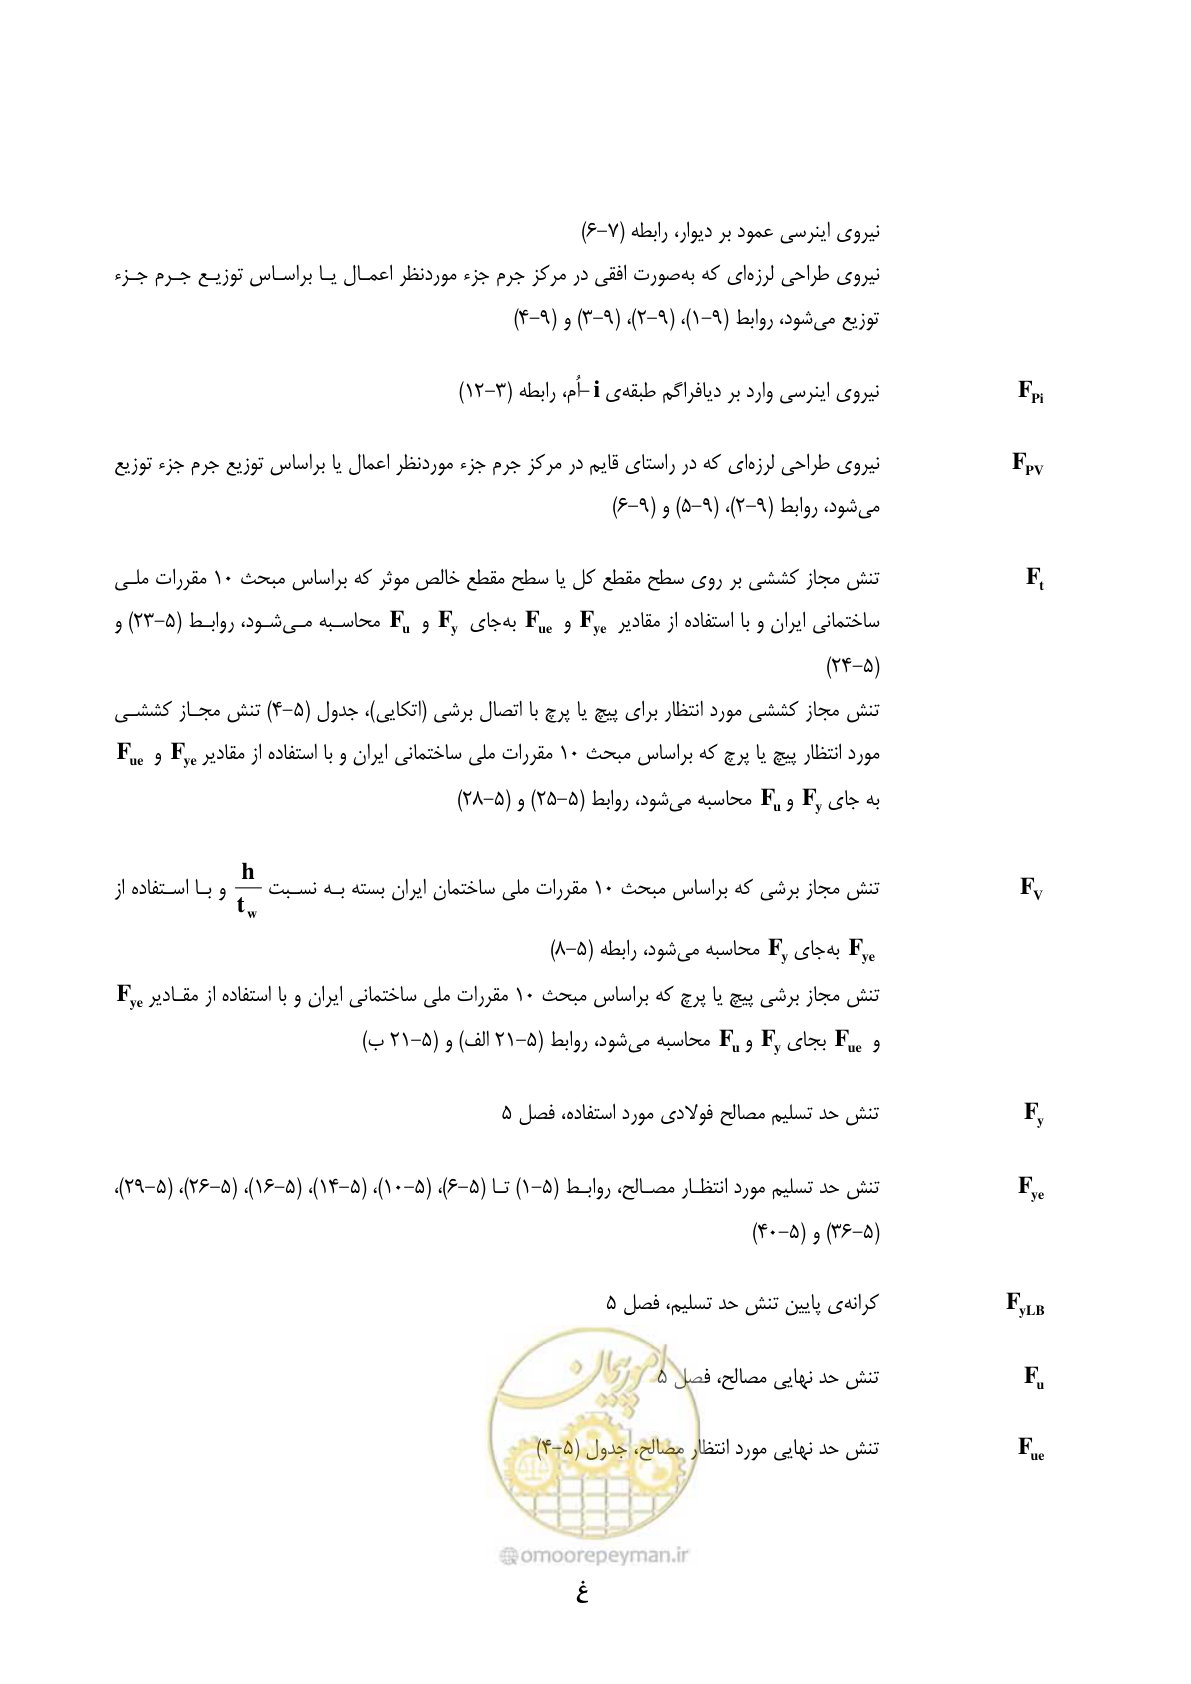 نیروی اینرسی عمود بر دیوار، رابطه (۷-۶)
نیروی طراحی لرزه‌ای که به‌صورت افقی در مرکز جرم جزء موردنظر اعمـال یـا براسـاس توزیـع جـرم جـزء
توزیع می‌شود، روابط (۹-۱)، (۹-۲)، (۹-۳) و (۹-۴)
F_Pi نیروی اینرسی وارد بر دیافراگم طبقه‌ی i-اُم، رابطه (۳-۱۲)
F_PV نیروی طراحی لرزه‌ای که در راستای قایم در مرکز جرم جزء موردنظر اعمال یا براساس توزیع جرم جزء توزیع
می‌شود، روابط (۹-۲)، (۹-۵) و (۹-۶)
F_t تنش مجاز کششی بر روی سطح مقطع کل یا سطح مقطع خالص موثر که براساس مبحث ۱۰ مقررات ملـی
ساختمانی ایران و با استفاده از مقادیر F_ye و F_ue به‌جای F_y و F_u محاسـبه مـی‌شـود، روابـط (۵-۲۳) و
(۵-۲۴)
تنش مجاز کششی مورد انتظار برای پیچ یا پرچ با اتصال برشی (اتکایی)، جدول (۵-۴) تنش مجـاز کششـی
مورد انتظار پیچ یا پرچ که براساس مبحث ۱۰ مقررات ملی ساختمانی ایران و با استفاده از مقادیر F_ye و F_ue
به جای F_y و F_u محاسبه می‌شود، روابط (۵-۲۵) و (۵-۲۸)
F_V تنش مجاز برشی که براساس مبحث ۱۰ مقررات ملی ساختمان ایران بسته بـه نسـبت h/t_w و بـا اسـتفاده از
F_ye به‌جای F_y محاسبه می‌شود، رابطه (۵-۸)
تنش مجاز برشی پیچ یا پرچ که براساس مبحث ۱۰ مقررات ملی ساختمانی ایران و با استفاده از مقـادیر F_ye
و F_ue بجای F_y و F_u محاسبه می‌شود، روابط (۵-۲۱ الف) و (۵-۲۱ ب)
F_y تنش حد تسلیم مصالح فولادی مورد استفاده، فصل ۵
F_ye تنش حد تسلیم مورد انتظـار مصـالح، روابـط (۵-۱) تـا (۵-۶)، (۵-۱۰)، (۵-۱۴)، (۵-۱۶)، (۵-۲۶)، (۵-۲۹)،
(۵-۳۶) و (۵-۴۰)
F_yLB کرانه‌ی پایین تنش حد تسلیم، فصل ۵
F_u تنش حد نهایی مصالح، فصل ۵
F_ue تنش حد نهایی مورد انتظار مصالح، جدول (۵-۴)
امور پیمان
@omoorepeyman.ir
غ